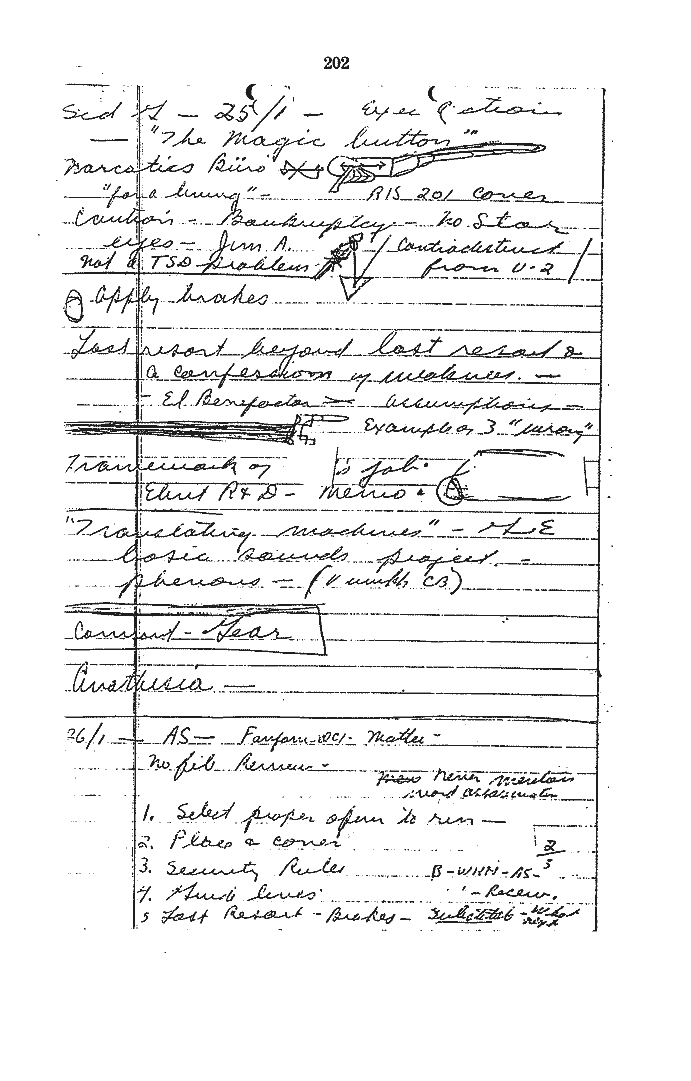 202
Sid G - 25/1 - Exec Action
- "The Magic button"
Narcotics Büro
"for a living" - RIS 201 cover
Caution - Bankruptcy - No Star
eyes - Jim A. / Contradistinct
not a TSD problem from U-2 /
Apply brakes
Last resort beyond last resort &
a confession of weakness. -
- El Benefactor - assumptions -
Examples 3 "wrong"
Framework of job.
Elint R & D - memo.
"Translating machines" -
basic sounds project -
- (CB)
Comond - Gear
Anathesia -
26/1 - AS - Matter -
No file Review -
Never mention
word assassination
1. Select proper to run -
2. Place & cover 2
3. Security Rules B - WHH - AS - 5
4. lines
5 Last Resort - Brakes - - What